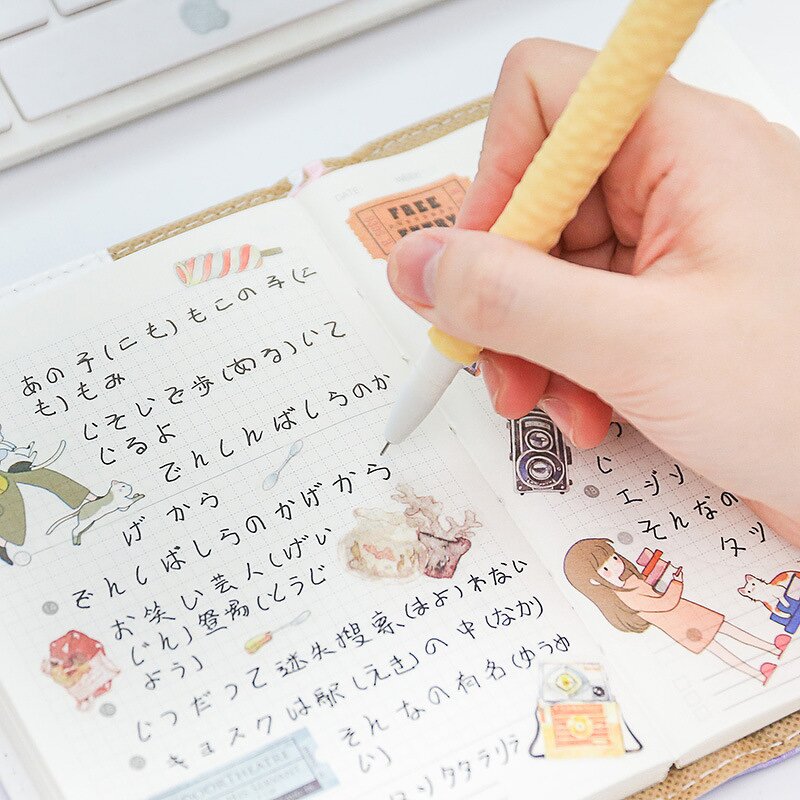 DATE:
FREE
ENTRY
あの子(こも)もこの子(こ
も)もみ
じそじそ歩(ある)いて
じるよ
でんしんばしらのか
げから
でんしばしらのかげから
お笑い芸人(げい
じん)登場(とうじ
よう)
じつだって迷失搜索(まよ)わない
キヨスクは駅(えき)の中(なか)
そんなの有名(ゆうゆ
い)
タタラリラ
じ
エジソ
そんなの
タッ